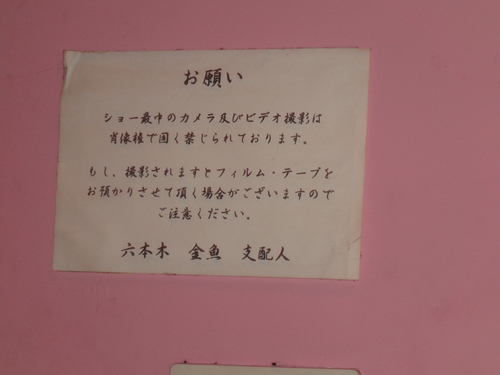 お願い
ショー最中のカメラ及びビデオ撮影は
肖像権で固く禁じられております。
もし、撮影されますとフィルム・テープを
お預かりさせて頂く場合がございますので
ご注意ください。
六本木 金魚 支配人